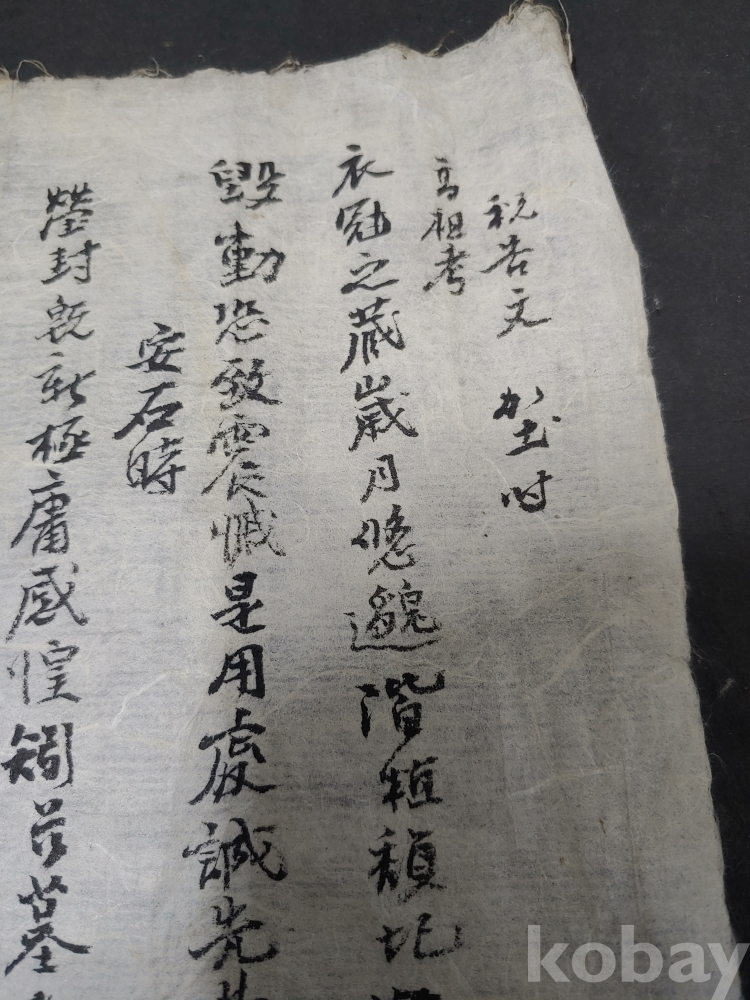 祝告文 加土时
高祖考
衣冠之藏歲月悠邈階植頹圮
毁動恐致震憾是用虔誠先
安石時
塋封旣新極庸感惶墓
kobay